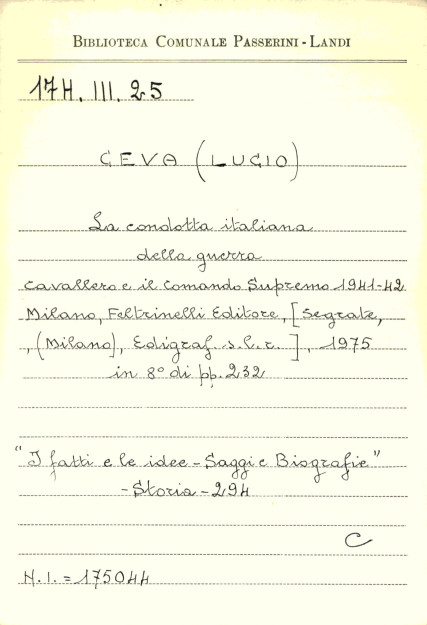 BIBLIOTECA COMUNALE PASSERINI - LANDI
17H. III. 25
CEVA (LUCIO)
La condotta italiana
della guerra
Cavallero e il Comando Supremo 1941-42
Milano, Feltrinelli Editore, [Segrate,
, (Milano), Edigraf. s.l.r. ], 1975
in 8° di pp. 232
"I fatti e le idee - Saggi e Biografie"
- Storia - 294
C
N.I. = 175044